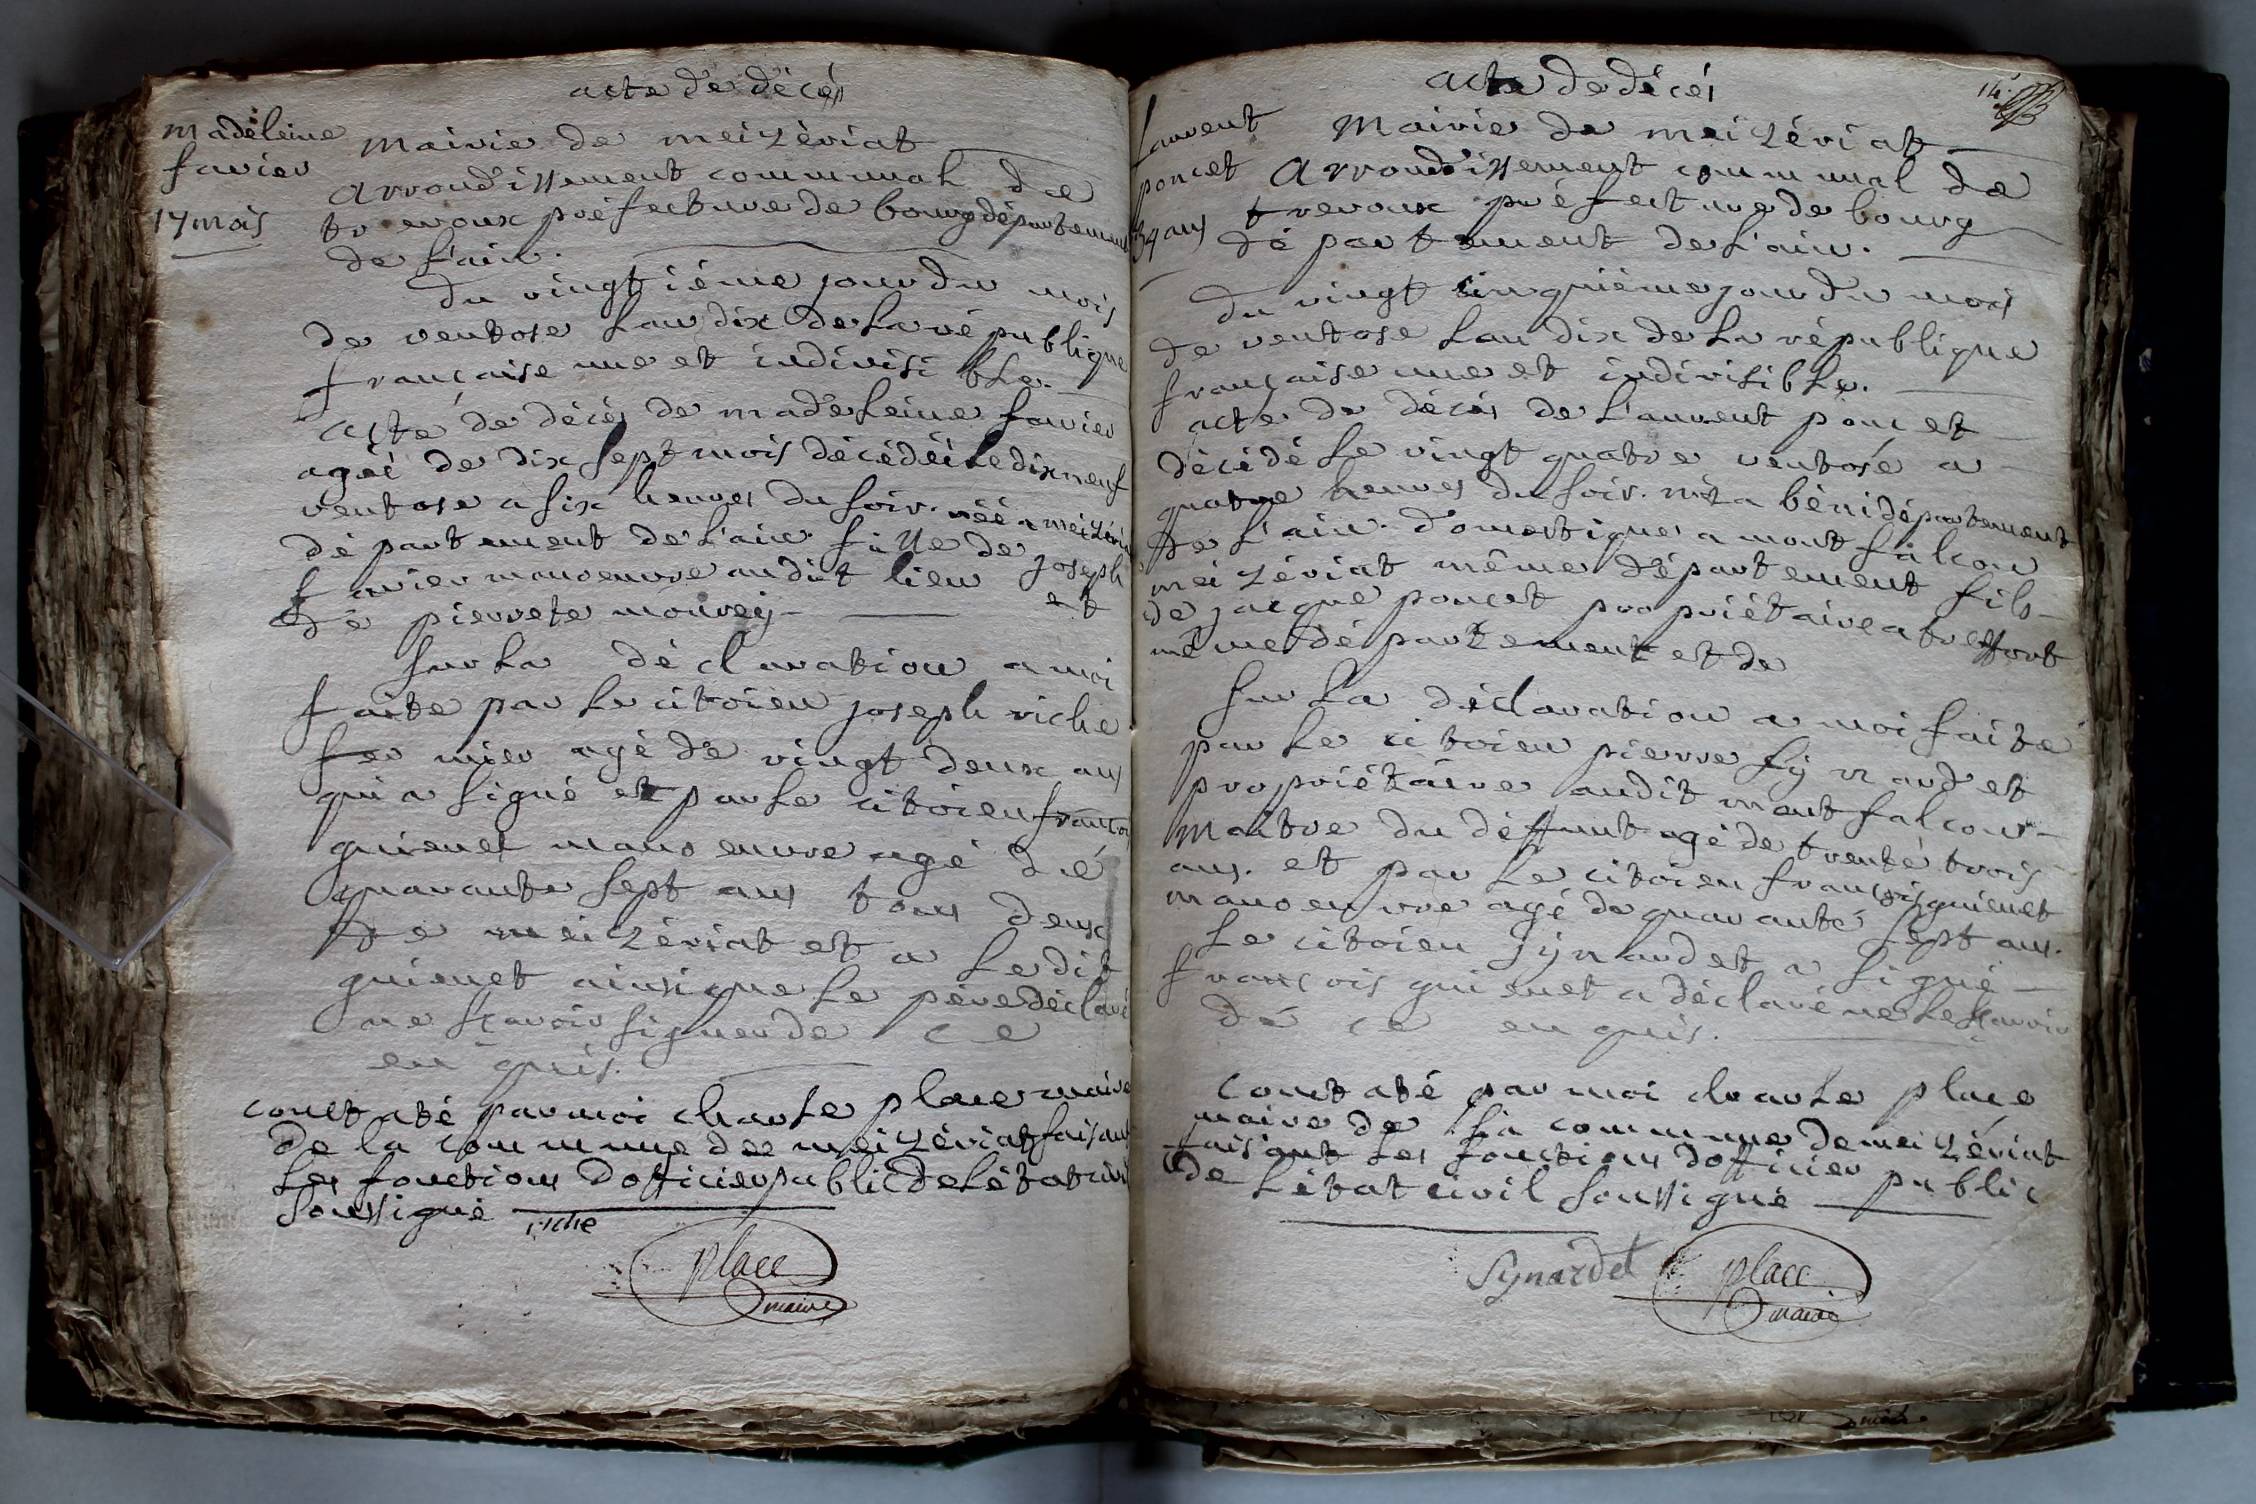 acte de décés
madeleine
favier
17 mois
mairie de meizériat
arrondissement communal de
trevoux préfecture de bourg département
de l'ain.
du vingtiéme jour du mois
de ventose l'an dix de la république
française une et indivisible.
acte de décés de madeleine favier
ageé de dix sept mois décédéé le dix neuf
ventose a six heures du soir. néé a meizéria
département de l'ain fille de joseph
favier manoeuvre audit lieu et
de pierrete mourey
sur la déclaration a moi
faite par le citoien joseph riche
fermier agé de vingt deux ans
qui a signé et par le citoien françois
guienet manoeuvre agé de
quarante sept ans tous deux
de meizériat et a ledit
guienet ainsi que le pére déclaré
ne sçavoir signer de ce
enquis.
constaté par moi charle place maire
de la commune de meizériat faisant
les fonctions dofficier public de létat civil
soussigné
riche
place
maire
acte de décés
14
Laurent
poncet
34 ans
Mairie de meizériat
arrondissement communal de
trevoux préfecture de bourg
département de l'ain.
du vingt cinquiéme jour du mois
de ventose l'an dix de la république
française une et indivisible.
acte de décés de laurent poncet
décédé le vingt quatre ventose a
quatre heures du soir. né a béni département
de l'ain. domestique a montfalcon
meizériat même département fils
de jacque poncet propriétaire a treffort
même département et de
sur la déclaration a moi faite
par le citoien pierre synardet
propriétaire audit montfalcon
maitre du deffunt agé de trente trois
ans. et par le citoien françois guienet
manoeuvre agé de quarante sept ans.
le citoien synardet a signé
françois guienet a déclaré ne le sçavoir
de ce enquis.
constaté par moi charle place
maire de la commune de meizériat
faisant les fonctions dofficier public
de létat civil soussigné
Synardet
place
maire